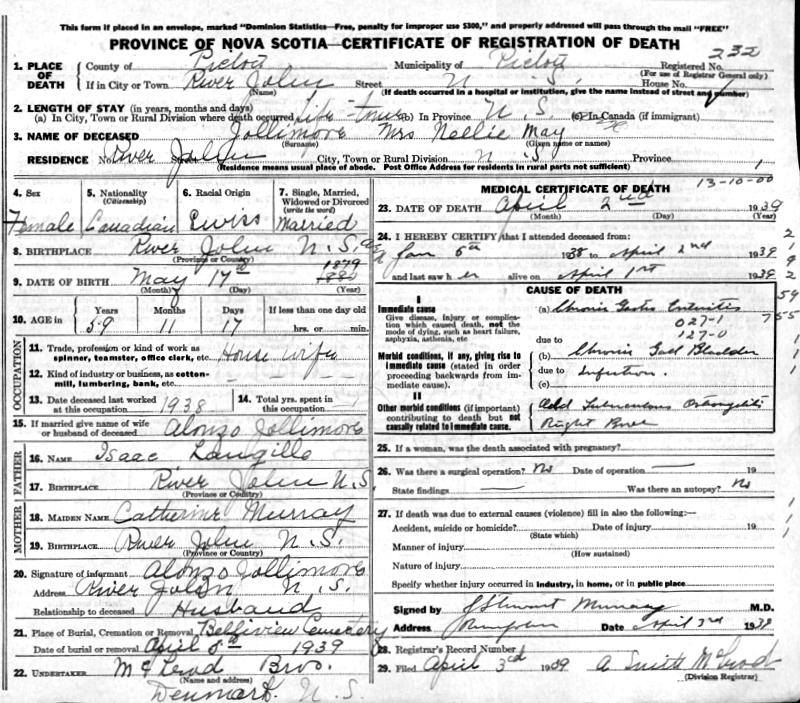 This form if placed in an envelope, marked "Dominion Statistics—Free, penalty for improper use $300," and properly addressed will pass through the mail "FREE"
PROVINCE OF NOVA SCOTIA—CERTIFICATE OF REGISTRATION OF DEATH
232
1. PLACE OF DEATH
County of Pictou Municipality of Pictou Registered No.
(For use of Registrar General only)
If in City or Town River John Street N. S. House No.
(Name) (If death occurred in a hospital or institution, give the name instead of street and number)
2. LENGTH OF STAY (in years, months and days)
(a) In City, Town or Rural Division where death occurred life-time (b) In Province N. S. (c) In Canada (if immigrant)
3. NAME OF DECEASED Jollimore Mrs Nellie May
(Surname) (Given name or names)
RESIDENCE No. River John Street City, Town or Rural Division N. S Province
(Residence means usual place of abode. Post Office Address for residents in rural parts not sufficient)
4. Sex Female
5. Nationality (Citizenship) Canadian
6. Racial Origin Swiss
7. Single, Married, Widowed or Divorced (write the word) Married
8. BIRTHPLACE River John N. S.
(Province or Country)
1879
9. DATE OF BIRTH May 17th 1880
(Month) (Day) (Year)
10. AGE in Years Months Days If less than one day old
59 11 17 hrs. or min.
OCCUPATION
11. Trade, profession or kind of work as spinner, teamster, office clerk, etc. House wife
12. Kind of industry or business, as cotton-mill, lumbering, bank, etc.
13. Date deceased last worked at this occupation 1938
14. Total yrs. spent in this occupation
15. If married give name of wife or husband of deceased Alonzo Jollimore
FATHER
16. NAME Isaac Langille
17. BIRTHPLACE River John N S.
(Province or Country)
MOTHER
18. MAIDEN NAME Catherine Murray
19. BIRTHPLACE River John N. S.
(Province or Country)
20. Signature of informant Alonzo Jollimore
Address River John N. S.
Relationship to deceased Husband
21. Place of Burial, Cremation or Removal Belliview Cemetery
Date of burial or removal April 5th 1939
22. UNDERTAKER McLeod Bros.
(Name and address)
Denmark N. S.
MEDICAL CERTIFICATE OF DEATH 13-10-00
23. DATE OF DEATH April 2nd 1939
(Month) (Day) (Year)
24. I HEREBY CERTIFY that I attended deceased from:
Jan 6th 1938 to April 2nd 1939
and last saw her alive on April 1st 1939
CAUSE OF DEATH
I
Immediate cause
Give disease, injury or complication which caused death, not the mode of dying, such as heart failure, asphyxia, asthenia, etc
(a) Chronic Gastro Enteritis
027-1
127-0
due to
Morbid conditions, if any, giving rise to immediate cause (stated in order proceeding backwards from immediate cause).
(b) Chronic Gall Bladder
due to Infection.
(c)
II
Other morbid conditions (if important) contributing to death but not causally related to immediate cause.
Old Tuberculous
Right
25. If a woman, was the death associated with pregnancy?
26. Was there a surgical operation? No Date of operation — 19
State findings — Was there an autopsy? No
27. If death was due to external causes (violence) fill in also the following:—
Accident, suicide or homicide? Date of injury 19
(State which)
Manner of injury
(How sustained)
Nature of injury
Specify whether injury occurred in industry, in home, or in public place
Signed by J Stewart Murray M.D.
Address Date April 3rd 1939
28. Registrar's Record Number
29. Filed April 3rd 1939 A Smith McLeod
(Division Registrar)